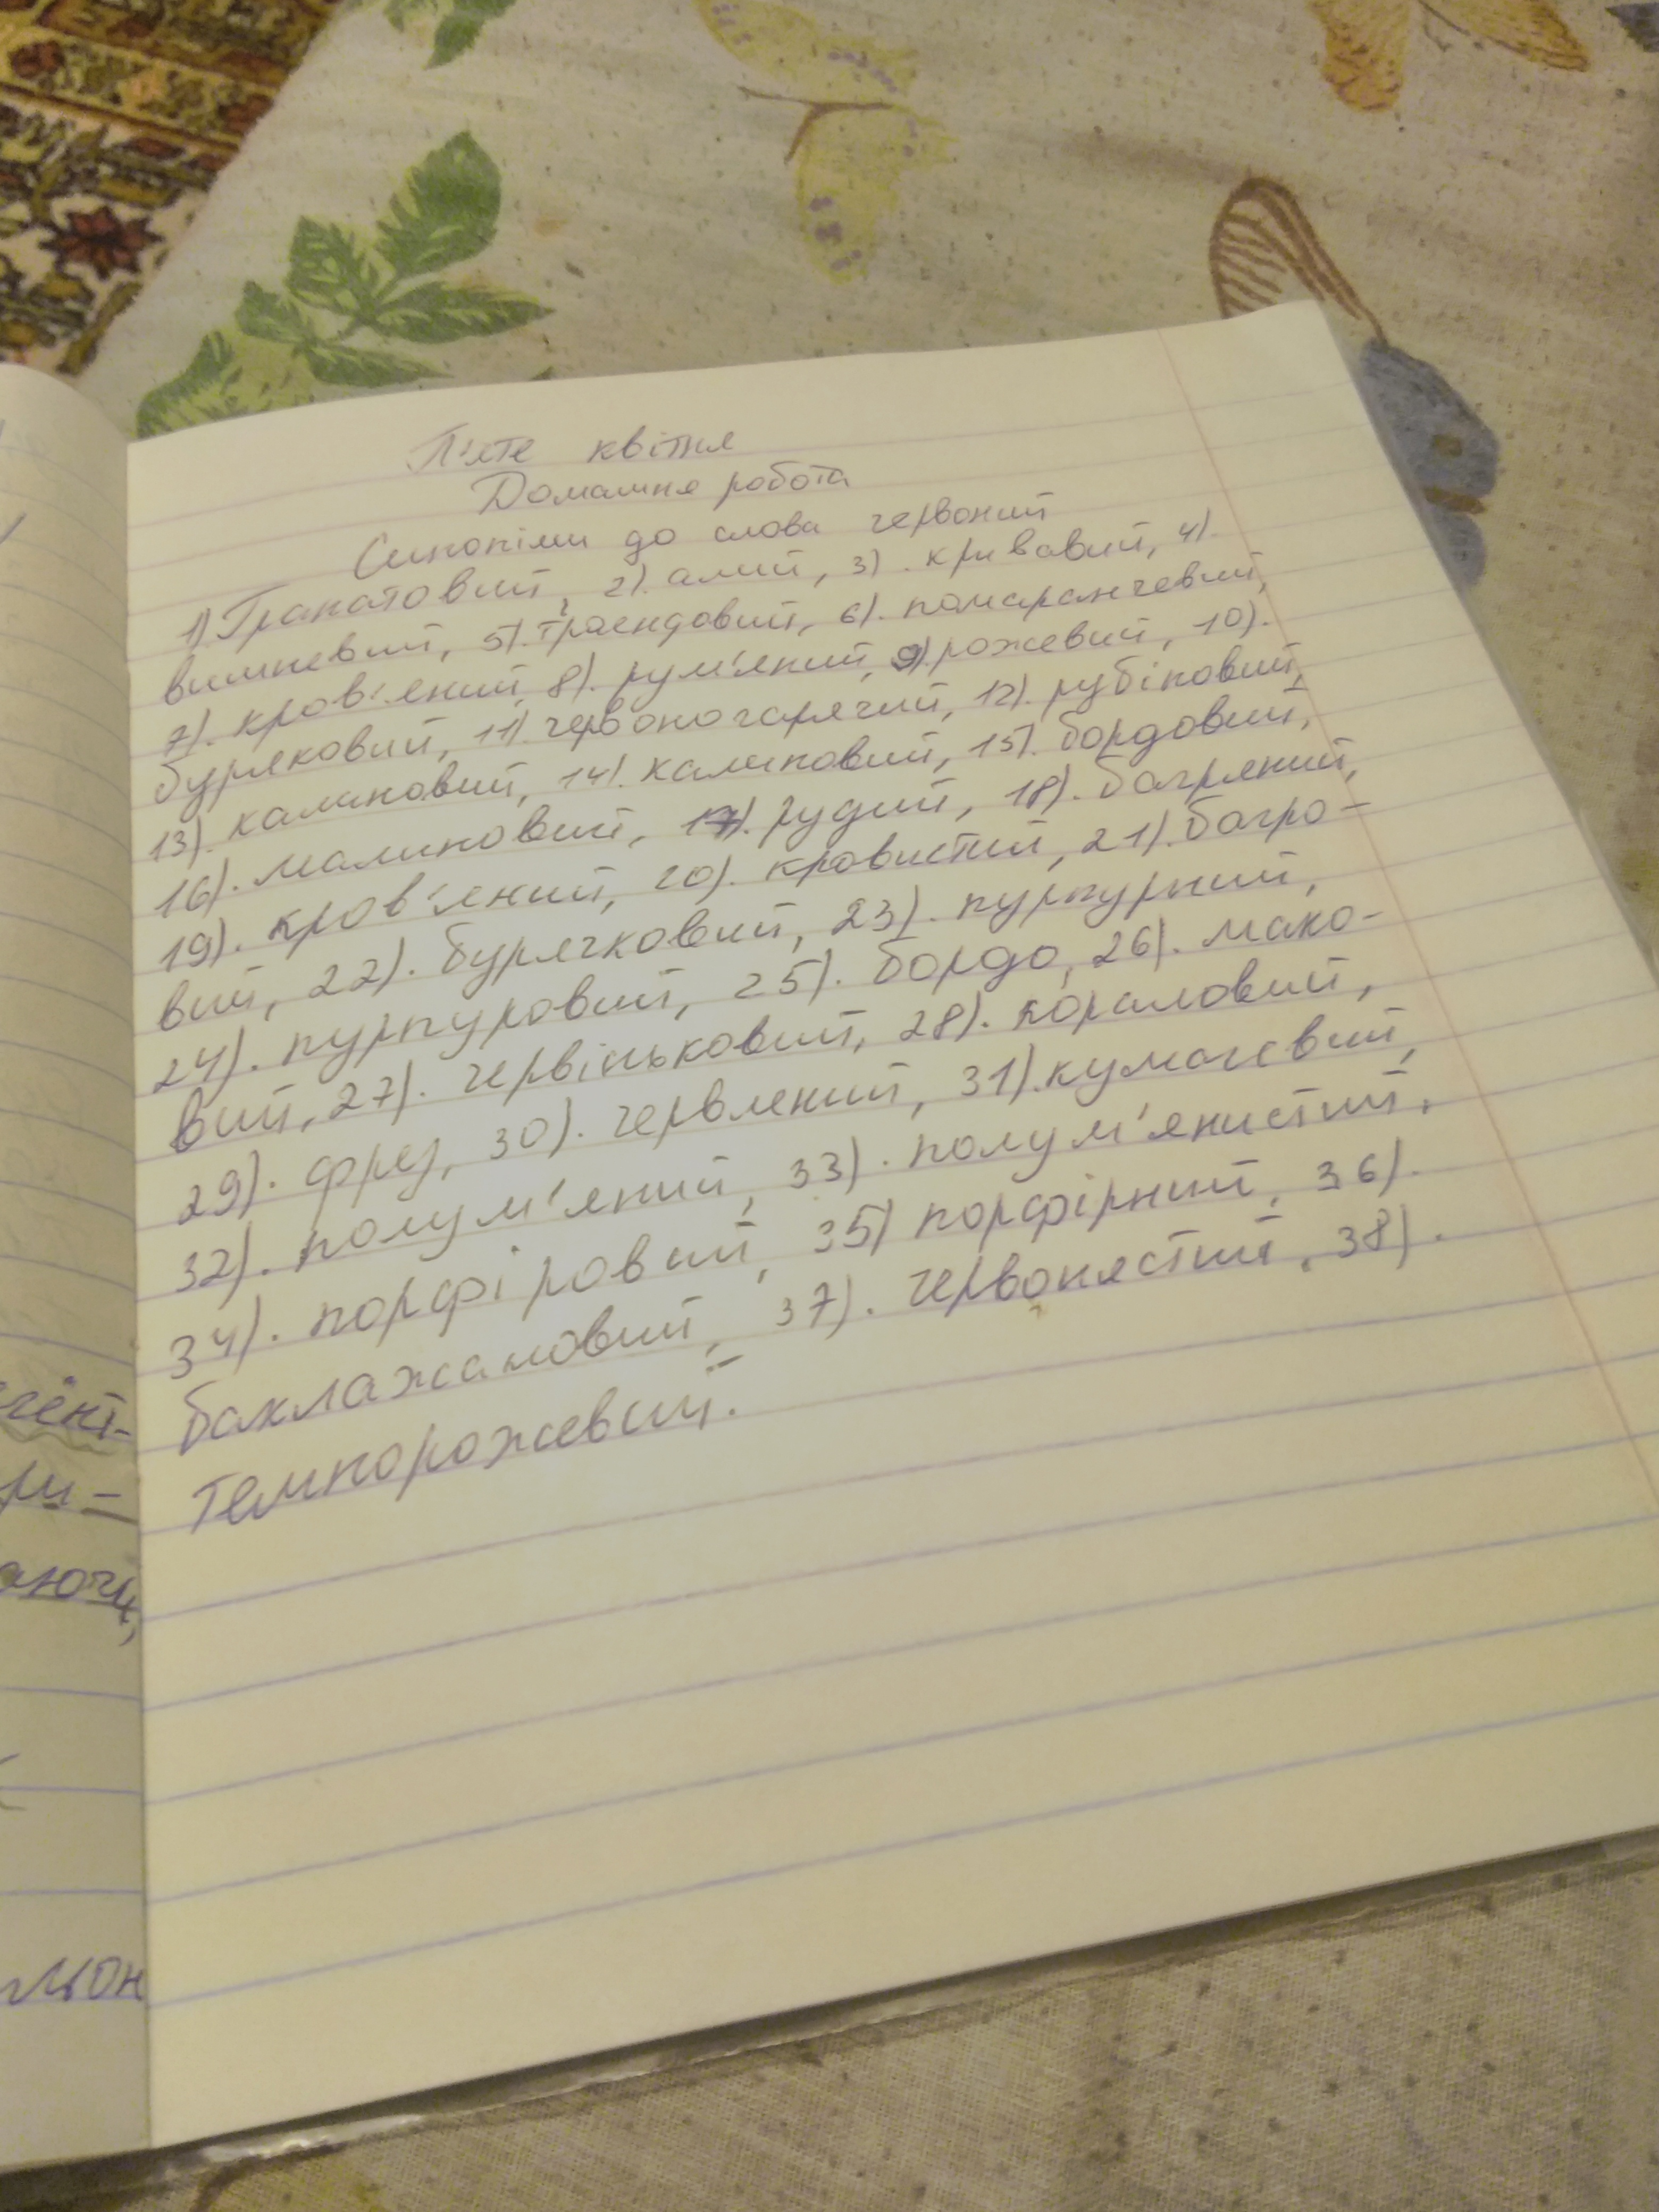 П'яте квітня
Домашня робота
Синоніми до слова червоний
1) Гранатовий, 2). алий, 3). кривавий, 4).
вишневий, 5). трояндовий, 6). помаранчевий,
7). кров'яний, 8). рум'яний, 9). рожевий, 10).
буряковий, 11). червоногарячий, 12). рубіновий,
13). калиновий, 14). калиновий, 15). бордовий,
16). малиновий, 17). рудий, 18). багряний,
19). кров'яний, 20). кровистий, 21). багро-
вий, 22). бурячковий, 23). пурпурний,
24). пурпуровий, 25). бордо, 26). мако-
вий, 27). червіньковий, 28). кораловий,
29). фрез, 30). червлений, 31). кумачевий,
32). полум'яний, 33). полум'янистий,
34). порфіровий, 35) порфірний, 36).
баклажановий, 37). червонястий, 38).
темнорожевий.
ри-
аючи,